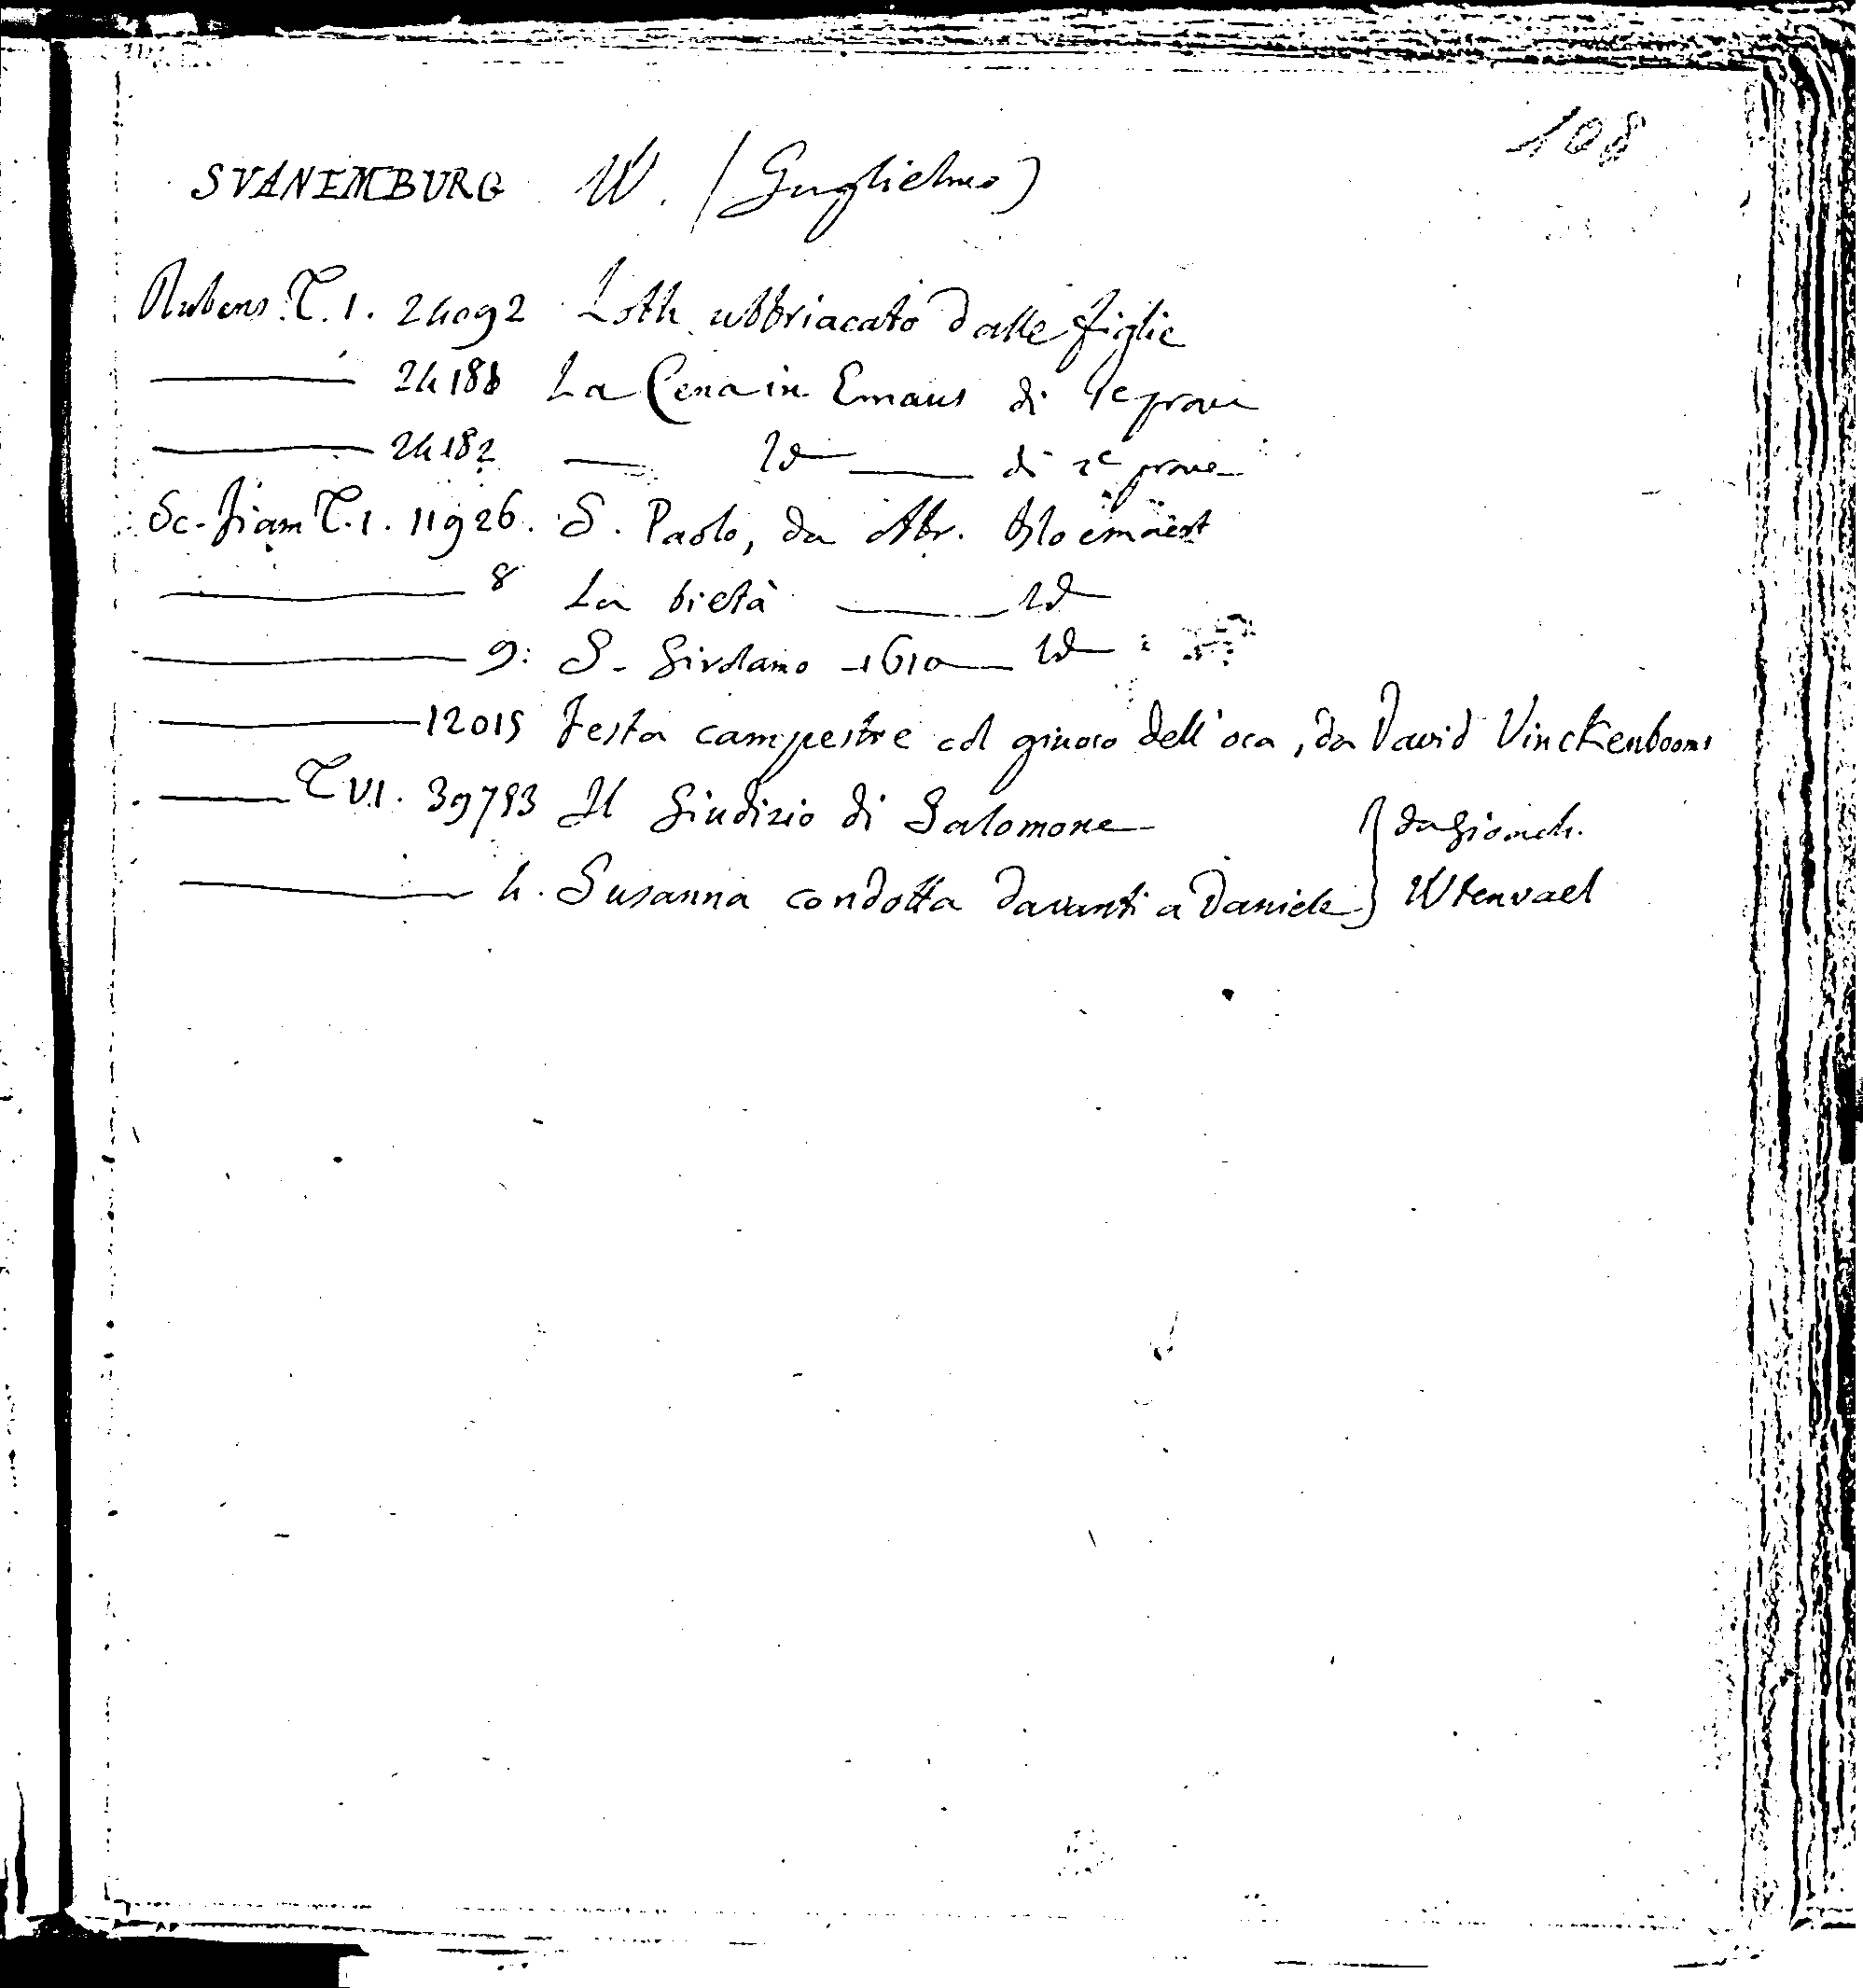 108
SVANEMBURG W. (Guglielmo)
Rubens. T. 1. 24092 Loth ubbriacato dalle figlie
——— 24181 La Cena in Emaus di 1e prove
——— 24182 — Id —— di 2e prove
Sc. fiam T. 1. 11926. S. Paolo, da Abr. Bloemaert
——— 8 La pietà —— Id
——— 9: S. Girolamo 1610 — Id
——— 12015 Festa campestre col giuoco dell'oca, da David Vinckenbooms
—— T VI. 39793 Il Giudizio di Salomone } da Gioach.
——— 4. Susanna condotta davanti a Daniele } Wtenvael